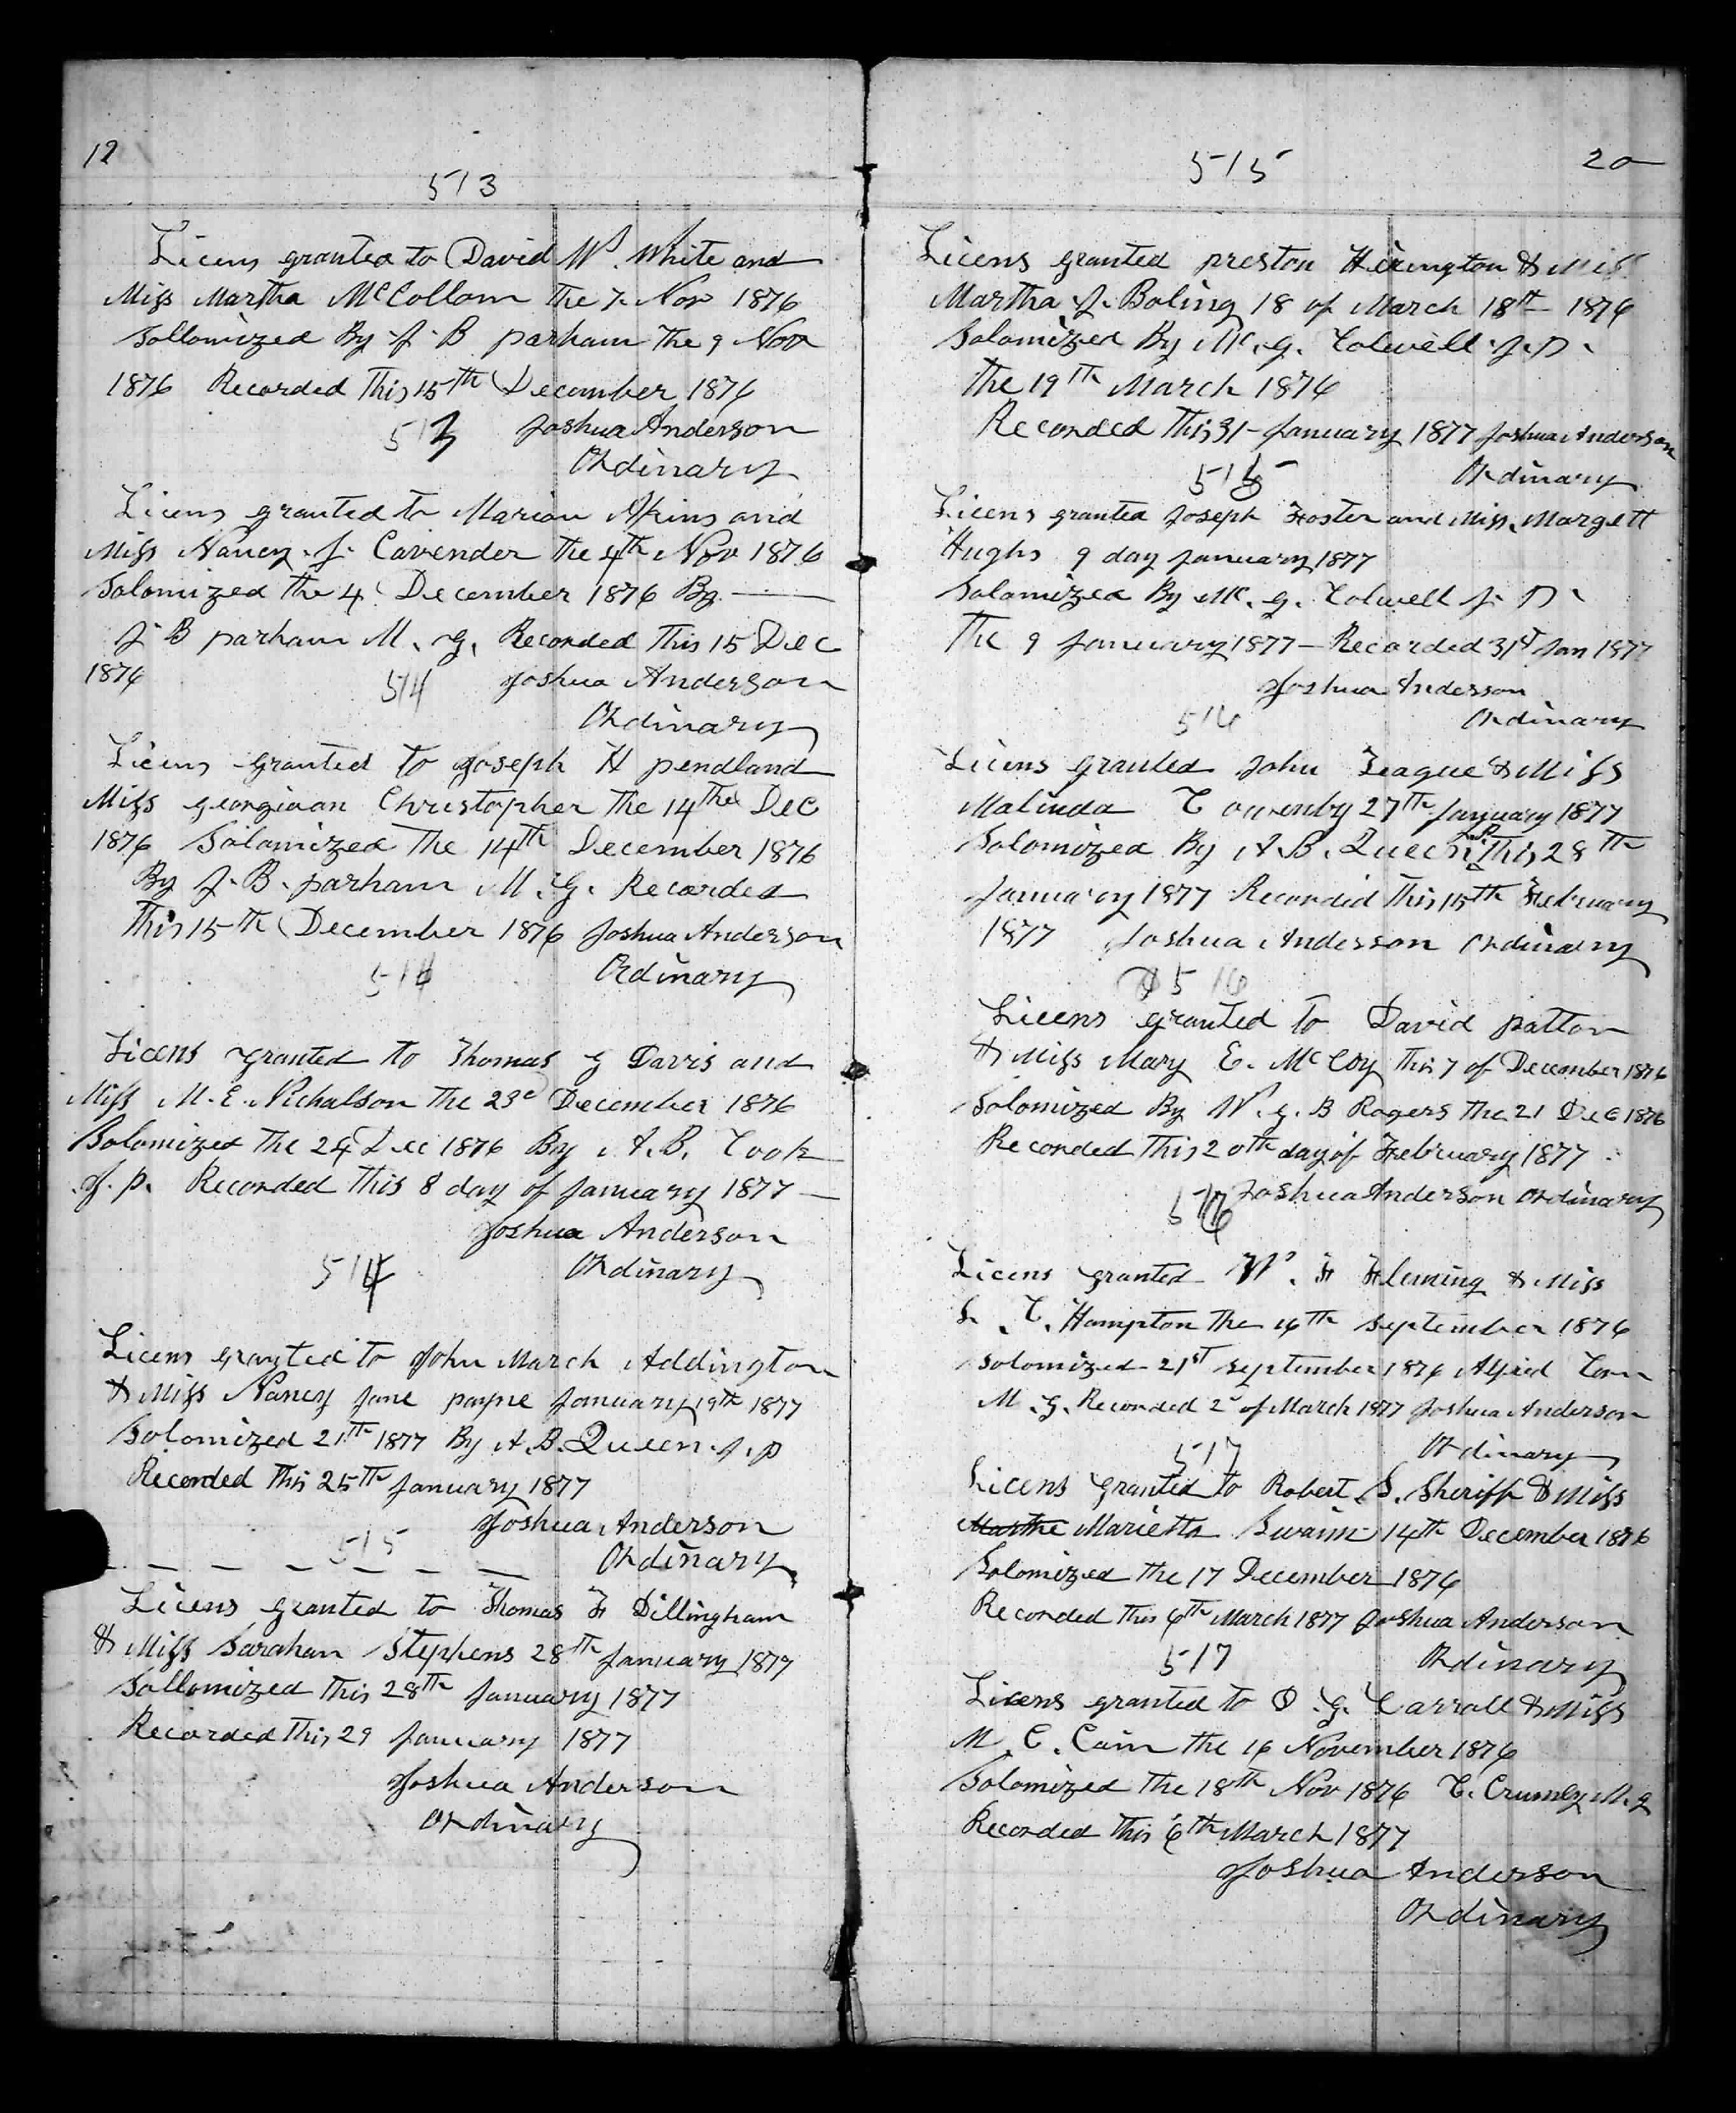 12
513
Licens granted to David W. White and
Miss Martha McCollom the 7. Nov 1876
Sollomized By J. B parham the 9 Nov
1876 Recorded This 15th December 1876
513 Joshua Anderson
Ordinary
Licens granted to Marion Akins and
Miss Nancy. J. Cavender the 4th Nov 1876
Solomized the 4 December 1876 By —
J B parham M. G. Recorded This 15 Dec
1876 514 Joshua Anderson
Ordinary
Licens granted to Joseph H pendland
Miss georgiaan Christopher the 14th Dec
1876 Solomized The 14th December 1876
By J. B. parham M. G. Recorded
This 15th December 1876 Joshua Anderson
514 Ordinary
Licens granted to Thomas G Davis and
Miss M. E. Nichalson the 23d December 1876
Solomized the 24 Dec 1876 By A. B. Cook
J. P. Recorded this 8 day of January 1877 —
Joshua Anderson
514 Ordinary
Licens granted to John March Addington
& Miss Nancy Jane payne January 19th 1877
Solomized 21th 1877 By A. B. Queen. J. p
Recorded this 25th January 1877
Joshua Anderson
515 Ordinary
Licens granted to Thomas F Dillingham
& Miss Sarahan Stephens 28th January 1877
Sollomized this 28th January 1877
Recorded This 29 January 1877
Joshua Anderson
Ordinary
515 20
Licens granted preston Herington & Miss
Martha J. Boling 18 of March 18th 1876
Solomized By Mc. G. Colwell J. P.
the 19th March 1876
Recorded This 31 January 1877 Joshua Anderson
515 Ordinary
Licens granted Joseph Foster and Miss. Margett
Hughs 9 day January 1877
Solomized By Mc. G. Colwell J. P.
The 9 January 1877 — Recorded 31st Jan 1877
Joshua Anderson
516 Ordinary
Licens granted John League & Miss
Malinda C owenby 27th January 1877
Solomized By A. B. Queen J.P. This 28th
January 1877 Recorded This 15th February
1877 Joshua Anderson Ordinary
516
Licens granted to David patton
& Miss Mary E. McCoy this 7 of December 1876
Solomized By W. G. B Rogers the 21 Dec 1876
Recorded This 20th day of February 1877
516 Joshua Anderson Ordinary
Licens granted W. F Fleming & Miss
S. C. Hampton the 16th September 1876
Solomized 21st September 1876 Alfred Corn
M. G. Recorded 2d of March 1877 Joshua Anderson
517 Ordinary
Licens granted to Robert. S. Sheriff & Miss
Marietta Swaim 14th December 1876
Solomized the 17 December 1876
Recorded this 6th March 1877 Joshua Anderson
517 Ordinary
Licens granted to O. G. Carroll & Miss
M. C. Cain the 16 November 1876
Solomized the 18th Nov 1876 C. Crumley M. g
Recorded this 6th March 1877
Joshua Anderson
Ordinary